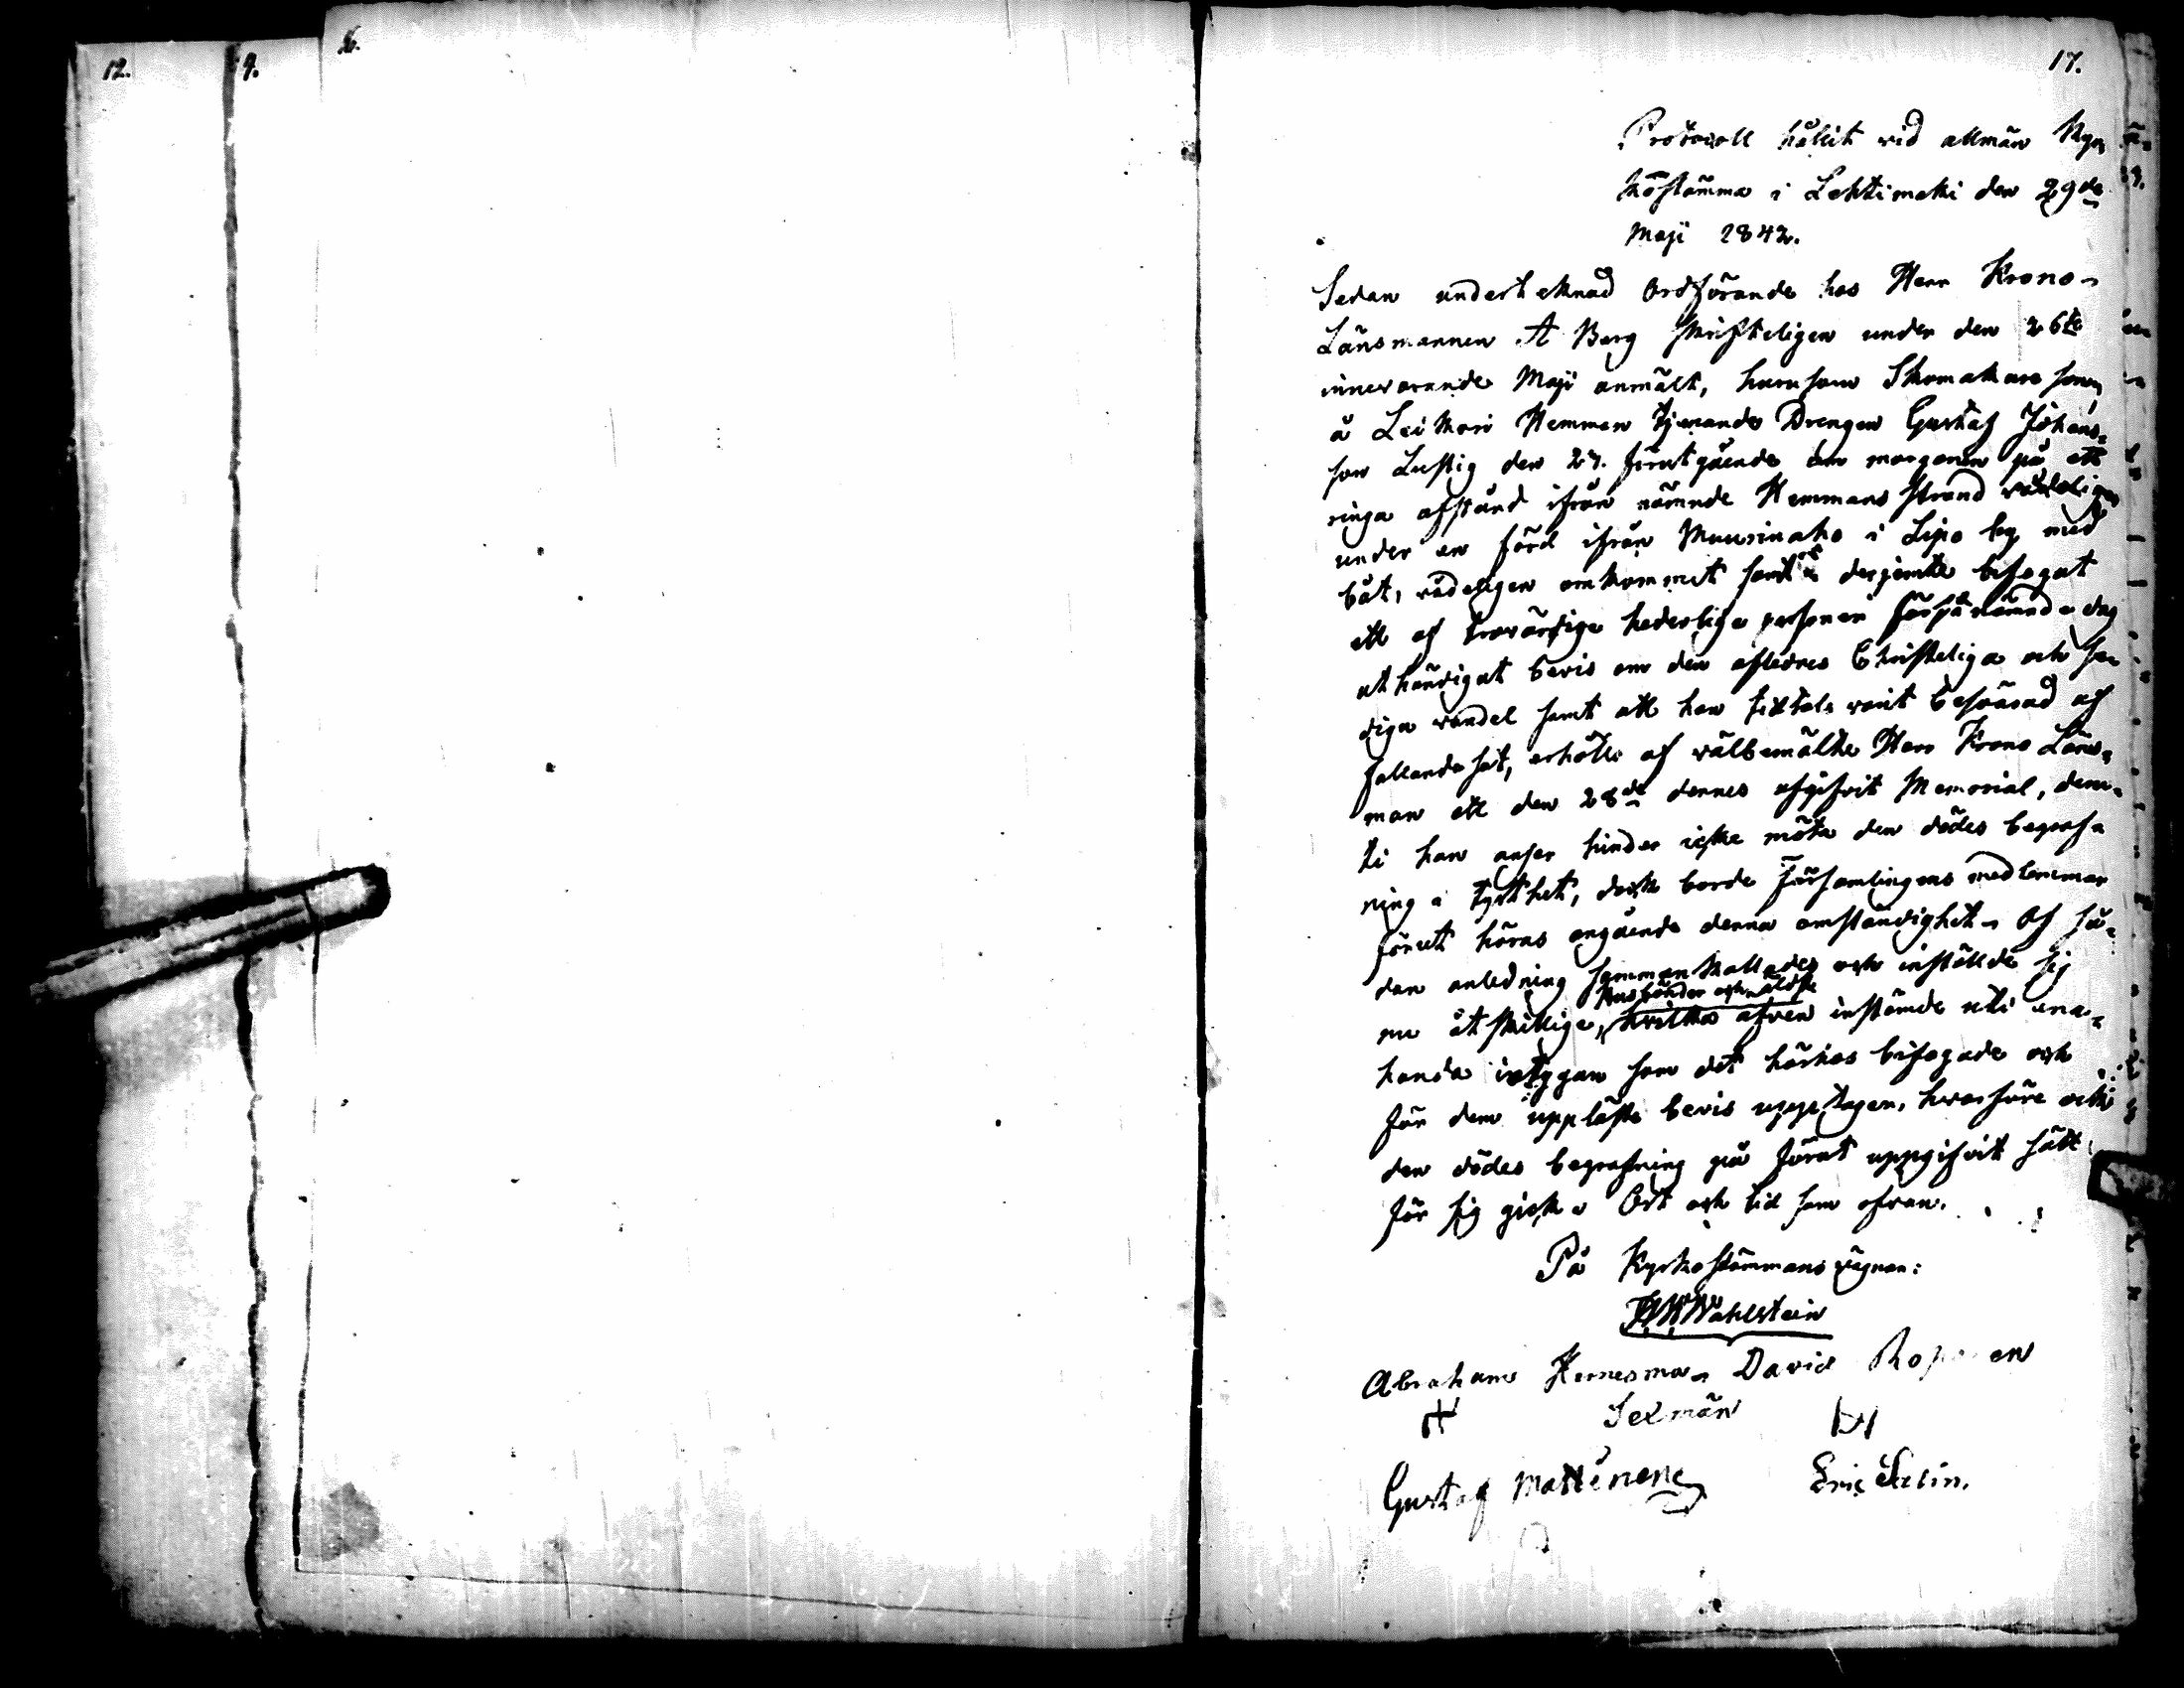 12.
9.
6.
17.
Protocoll hållit vid allmän Kyr
kostämma i Lehtimäki den 29de
Maji 1842.
Sedan undertecknad Ordförande hos Herr Krono-
Länsmannen A Berg skrifteligen under den 26te
innevarande Maji anmält, hurusom Skomakare sonen
å Leikkari Hemman tjenande Drengen Gustaf Johans-
son Lustig den förutgående om morgonen på ett
ringa afstånd ifrån nämnde Hemmans strand
under en färd ifrån Muurinaho i Lipo by med
båt, vådeligen omkommit samt derjemte bifogat
ett af trovärdige hederlige personer förpånämnde dag
uthändigat bevis om den aflednes Christeliga och se-
diga vandel samt att han tidtals varit besvärad af
fallande sot, erhölls af välbemälte Herr Krono Läns-
man ett den 28de dennes afgifvit Memorial, deru-
ti han anser hinder icke möta den dödes begrafn
ning i tysthet, dock borde Församlingens medlemmar
förut höras angående denna omständighet. Af så-
dan anledning sammankallades och inställde sig
nu åtskillige, Husbönder och äldste
hvilka äfven instämde uti ena-
handa intygan som det härhos bifogade och
för dem uppläste bevis upptager, hvarföre och
den dödes begrafning på förut uppgifvit sätt
för sig gick. Ort och tid som ofvan.
På Kyrkostämmans vägnar:
Wahlstein
Abraham Hernesma David
Sexmän
Gustaf Mattinen Eric